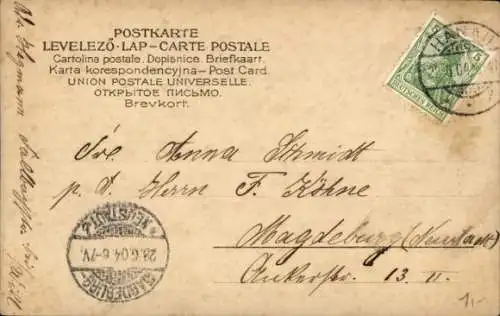 POSTKARTE
LEVELEZŐ-LAP-CARTE POSTALE
Cartolina postale. Dopisnice. Briefkaart.
Karta korespondencyjna-Post Card.
UNION POSTALE UNIVERSELLE.
ОТКРЫТОЕ ПИСЬМО.
Brevkort.
5
DEUTSCHES REICH
Anna Schmidt
p. A. Herrn F. Köhne
Magdeburg (Neustadt)
Ankerstr. 13 II.
MAGDEBURG-
28.6.04.6-7V.
NEUSTADT
1,-